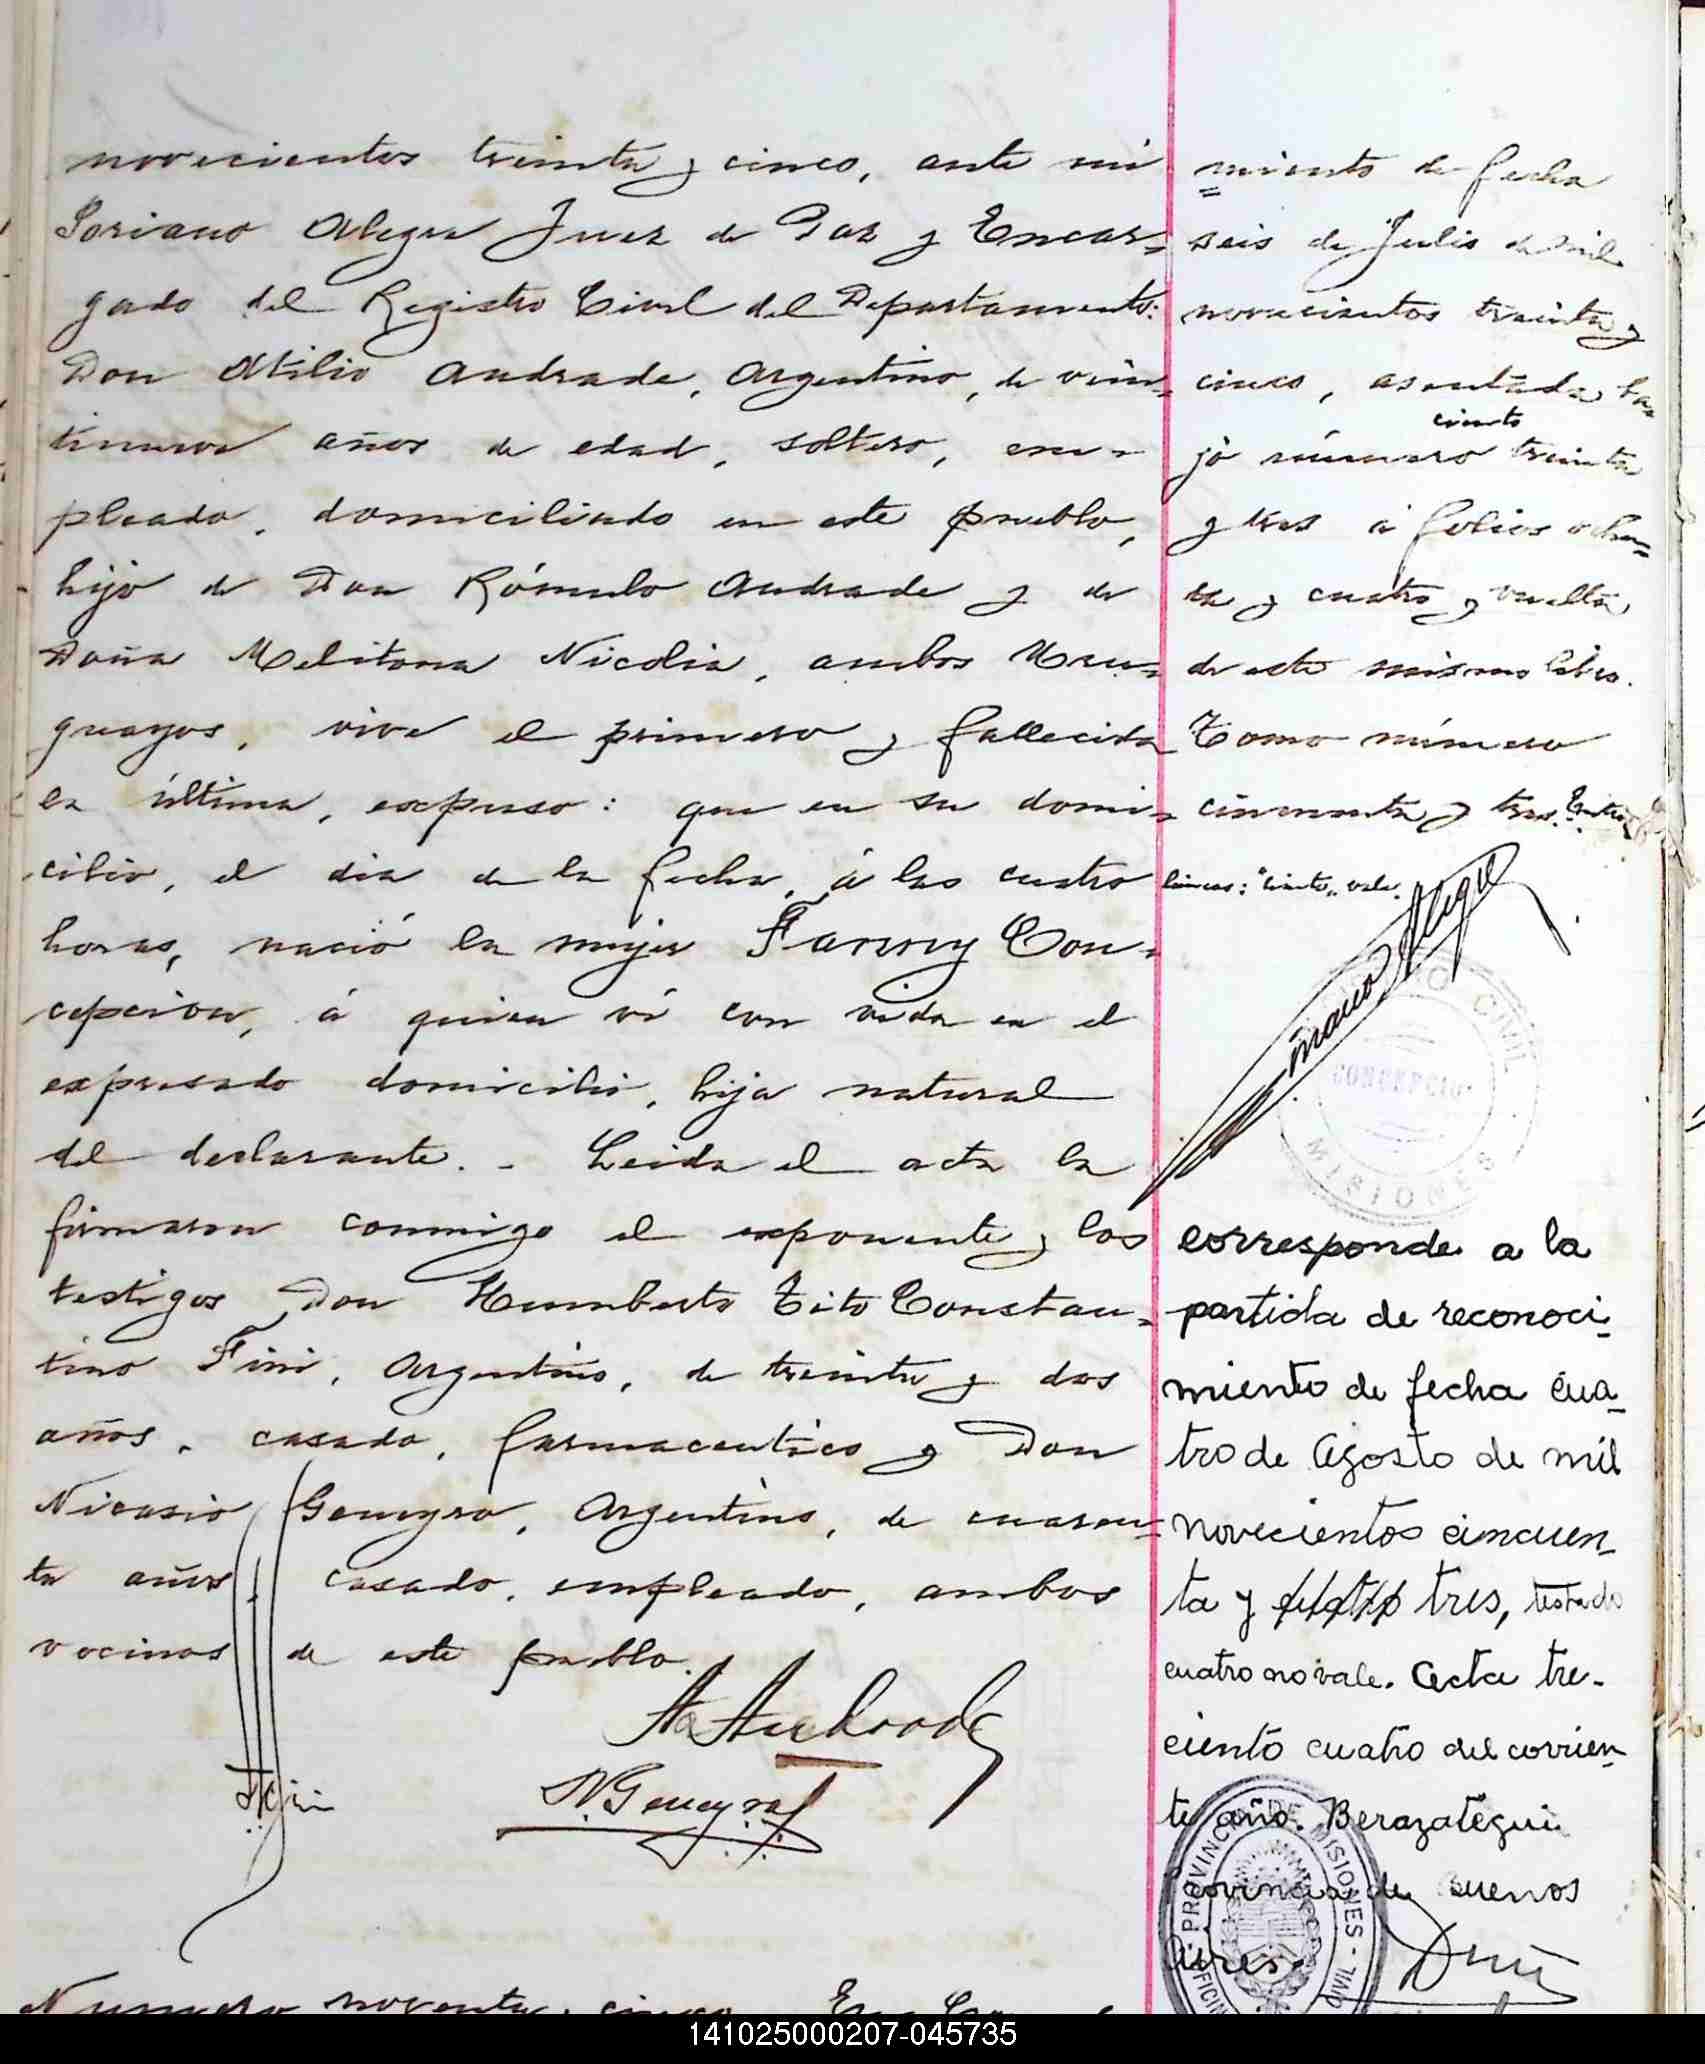 novecientos treinta y cinco, ante mi
Soriano Alegre Juez de Paz y Encar=
gado del Registro Civil del Departamento:
Don Atilio Andrade, Argentino, de vein=
tinueve años de edad, soltero, em=
pleado, domiciliado en este pueblo,
hijo de Don Rómulo Andrade y de
Doña Melitona Nicolia, ambos Uru=
guayos, vive el primero y fallecida
la última, expuso: que en su domi=
cilio, el dia de la fecha, á las cuatro
horas, nació la mujer Fanny Con=
cepcion, á quien ví con vida en el
expresado domicilio, hija natural
del declarante. - Leida el acta la
firmaron conmigo el exponente y los
testigos Don Humberto Tito Constan=
tino Fini, Argentino, de treinta y dos
años, casado, farmaceutico y Don
Nicasio Geneyro, Argentino, de cuaren=
ta años, casado, empleado, ambos
vecinos de este pueblo.
A Andrade
N. Geneyro
Numero noventa y cinco. En
=miento de fecha
seis de Julio de mil
novecientos treinta y
cinco, asentada ba=
ciento
jo número treinta
y tres á folios ochen=
ta y cuatro y vuelta
de este mismo libro.
Tomo número
cincuenta y tres. Entre
lineas: "ciento" vale.
Soriano Alegre
REGISTRO CIVIL
CONCEPCION
MISIONES
corresponde a la
partida de reconoci-
miento de fecha cua-
tro de Agosto de mil
novecientos cincuen-
ta y cuatro tres, testado
cuatro no vale. Acta tre-
ciento cuatro del corrien-
te año. Berazategui
Provincia de Buenos
Aires.
PROVINCIA DE MISIONES
141025000207-045735